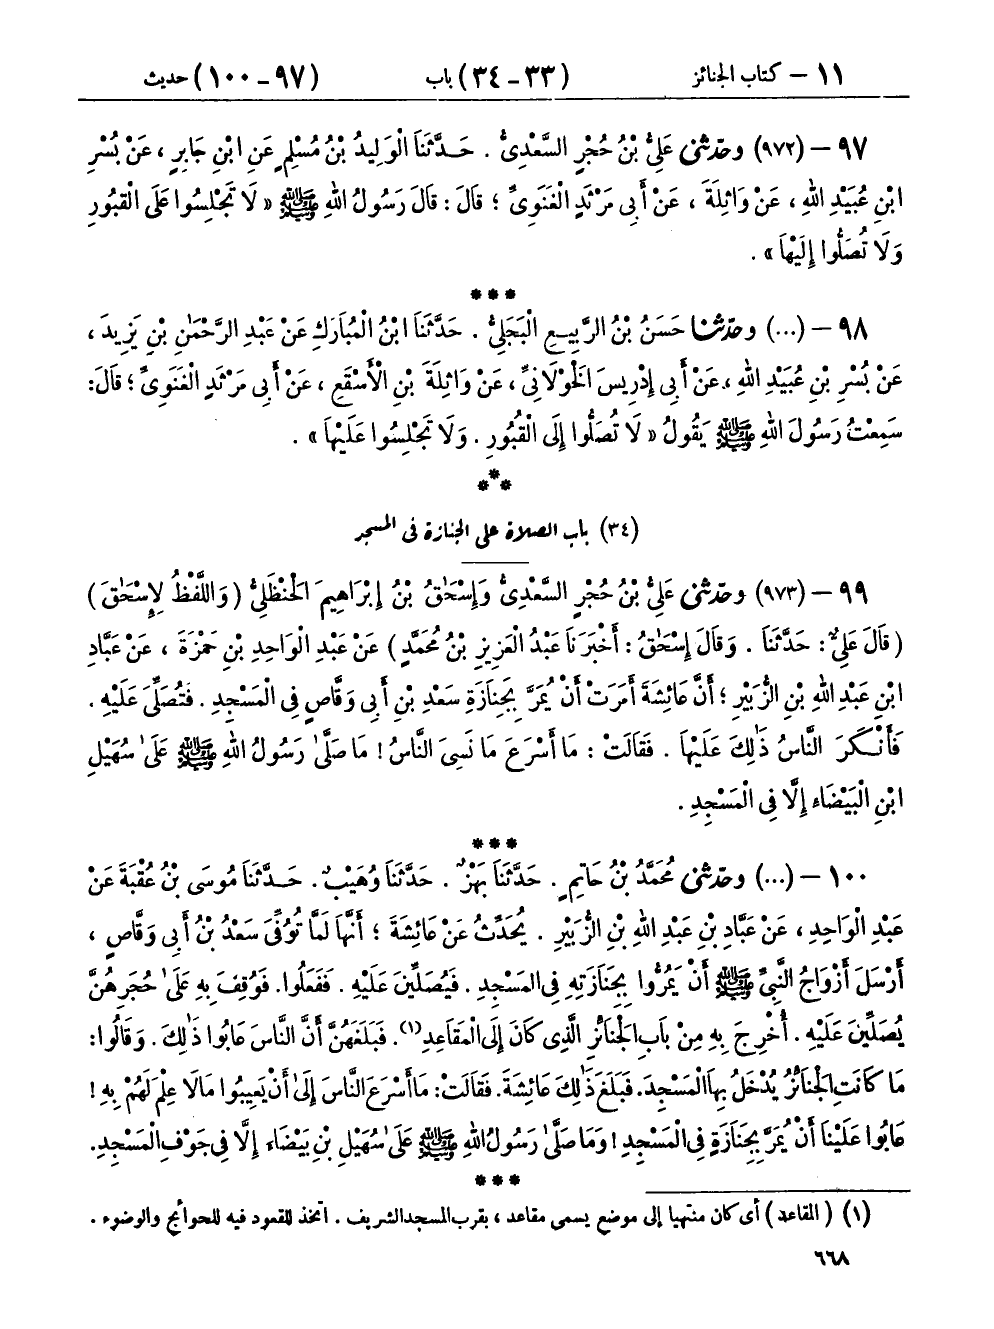 ١١ – كتاب الجنائز (٣٣-٣٤) باب (٩٧-١٠٠) حديث
٩٧ – (٩٧٢) وحدّثنى عَلِىُّ بْنُ حُجْرٍ السَّعْدِىُّ . حَدَّثَنَا الْوَلِيدُ بْنُ مُسْلِمٍ عَنِ ابْنِ جَابِرٍ ، عَنْ بُسْرِ
ابْنِ عُبَيْدِ اللهِ ، عَنْ وَاثِلَةَ ، عَنْ أَبِى مَرْثَدٍ الْغَنَوِىِّ ؛ قَالَ : قَالَ رَسُولُ اللهِ ﷺ « لَا تَجْلِسُوا عَلَى الْقُبُورِ
وَلَا تُصَلُّوا إِلَيْهَا » .
***
٩٨ – (...) وحدّثنا حَسَنُ بْنُ الرَّبِيعِ الْبَجَلِىُّ . حَدَّثَنَا ابْنُ الْمُبَارَكِ عَنْ عَبْدِ الرَّحْمٰنِ بْنِ يَزِيدَ ،
عَنْ بُسْرِ بْنِ عُبَيْدِ اللهِ ، عَنْ أَبِى إِدْرِيسَ الْخَوْلَانِىِّ ، عَنْ وَاثِلَةَ بْنِ الْأَسْقَعِ ، عَنْ أَبِى مَرْثَدٍ الْغَنَوِىِّ ؛ قَالَ:
سَمِعْتُ رَسُولَ اللهِ ﷺ يَقُولُ « لَا تُصَلُّوا إِلَى الْقُبُورِ . وَلَا تَجْلِسُوا عَلَيْهَا » .
***
(٣٤) باب الصلاة على الجنازة فى المسجد
٩٩ – (٩٧٣) وحدّثنى عَلِىُّ بْنُ حُجْرٍ السَّعْدِىُّ وَإِسْحٰقُ بْنُ إِبْرَاهِيمَ الْحَنْظَلِىُّ ( وَاللَّفْظُ لِإِسْحٰقَ )
( قَالَ عَلِىٌّ : حَدَّثَنَا . وَقَالَ إِسْحٰقُ : أَخْبَرَنَا عَبْدُ الْعَزِيزِ بْنُ مُحَمَّدٍ ) عَنْ عَبْدِ الْوَاحِدِ بْنِ حَمْزَةَ ، عَنْ عَبَّادِ
ابْنِ عَبْدِ اللهِ بْنِ الزُّبَيْرِ ؛ أَنَّ عَائِشَةَ أَمَرَتْ أَنْ يُمَرَّ بِجَنَازَةِ سَعْدِ بْنِ أَبِى وَقَّاصٍ فِى الْمَسْجِدِ . فَتُصَلِّىَ عَلَيْهِ .
فَأَنْكَرَ النَّاسُ ذٰلِكَ عَلَيْهَا . فَقَالَتْ : مَا أَسْرَعَ مَا نَسِىَ النَّاسُ ! مَا صَلَّىٰ رَسُولُ اللهِ ﷺ عَلَىٰ سُهَيْلِ
ابْنِ الْبَيْضَاءِ إِلَّا فِى الْمَسْجِدِ .
***
١٠٠ – (...) وحدّثنى مُحَمَّدُ بْنُ حَاتِمٍ . حَدَّثَنَا بَهْزٌ . حَدَّثَنَا وُهَيْبٌ . حَدَّثَنَا مُوسَى بْنُ عُقْبَةَ عَنْ
عَبْدِ الْوَاحِدِ ، عَنْ عَبَّادِ بْنِ عَبْدِ اللهِ بْنِ الزُّبَيْرِ . يُحَدِّثُ عَنْ عَائِشَةَ ؛ أَنَّهَا لَمَّا تُوُفِّىَ سَعْدُ بْنُ أَبِى وَقَّاصٍ ،
أَرْسَلَ أَزْوَاجُ النَّبِىِّ ﷺ أَنْ يَمُرُّوا بِجَنَازَتِهِ فِى الْمَسْجِدِ . فَيُصَلِّينَ عَلَيْهِ . فَفَعَلُوا. فَوُقِفَ بِهِ عَلَىٰ حُجَرِهِنَّ
يُصَلِّينَ عَلَيْهِ . أُخْرِجَ بِهِ مِنْ بَابِ الْجَنَائِزِ الَّذِى كَانَ إِلَى الْمَقَاعِدِ(١). فَبَلَغَهُنَّ أَنَّ النَّاسَ عَابُوا ذٰلِكَ . وَقَالُوا:
مَا كَانَتِ الْجَنَائِزُ يُدْخَلُ بِهَا الْمَسْجِدَ. فَبَلَغَ ذٰلِكَ عَائِشَةَ. فَقَالَتْ: مَا أَسْرَعَ النَّاسَ إِلَىٰ أَنْ يَعِيبُوا مَالَا عِلْمَ لَهُمْ بِهِ !
عَابُوا عَلَيْنَا أَنْ يُمَرَّ بِجَنَازَةٍ فِى الْمَسْجِدِ ! وَمَا صَلَّىٰ رَسُولُ اللهِ ﷺ عَلَىٰ سُهَيْلِ بْنِ بَيْضَاءَ إِلَّا فِى جَوْفِ الْمَسْجِدِ.
***
(١) ( المقاعد ) أى كان منتهيا إلى موضع يسمى مقاعد ، بقرب المسجد الشريف . اتخذ للقعود فيه للحوائج والوضوء .
٦٦٨